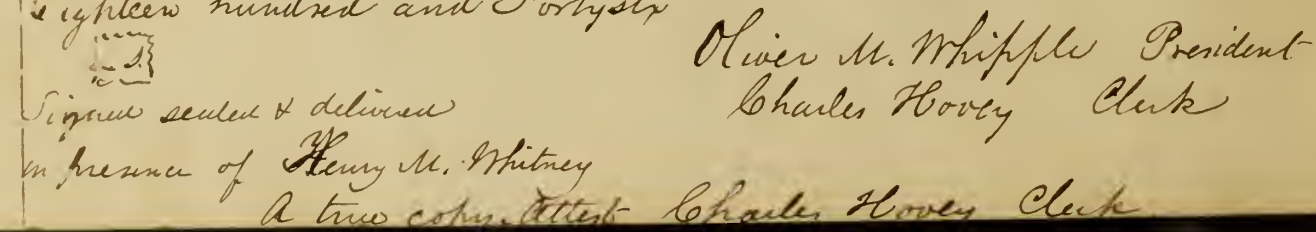 Eighteen hundred and Fortysix
L.S.
Oliver M. Whipple President
Signed sealed & delivered
Charles Hovey Clerk
in presence of Henry M. Whitney
A true copy. Attest Charles Hovey Clerk